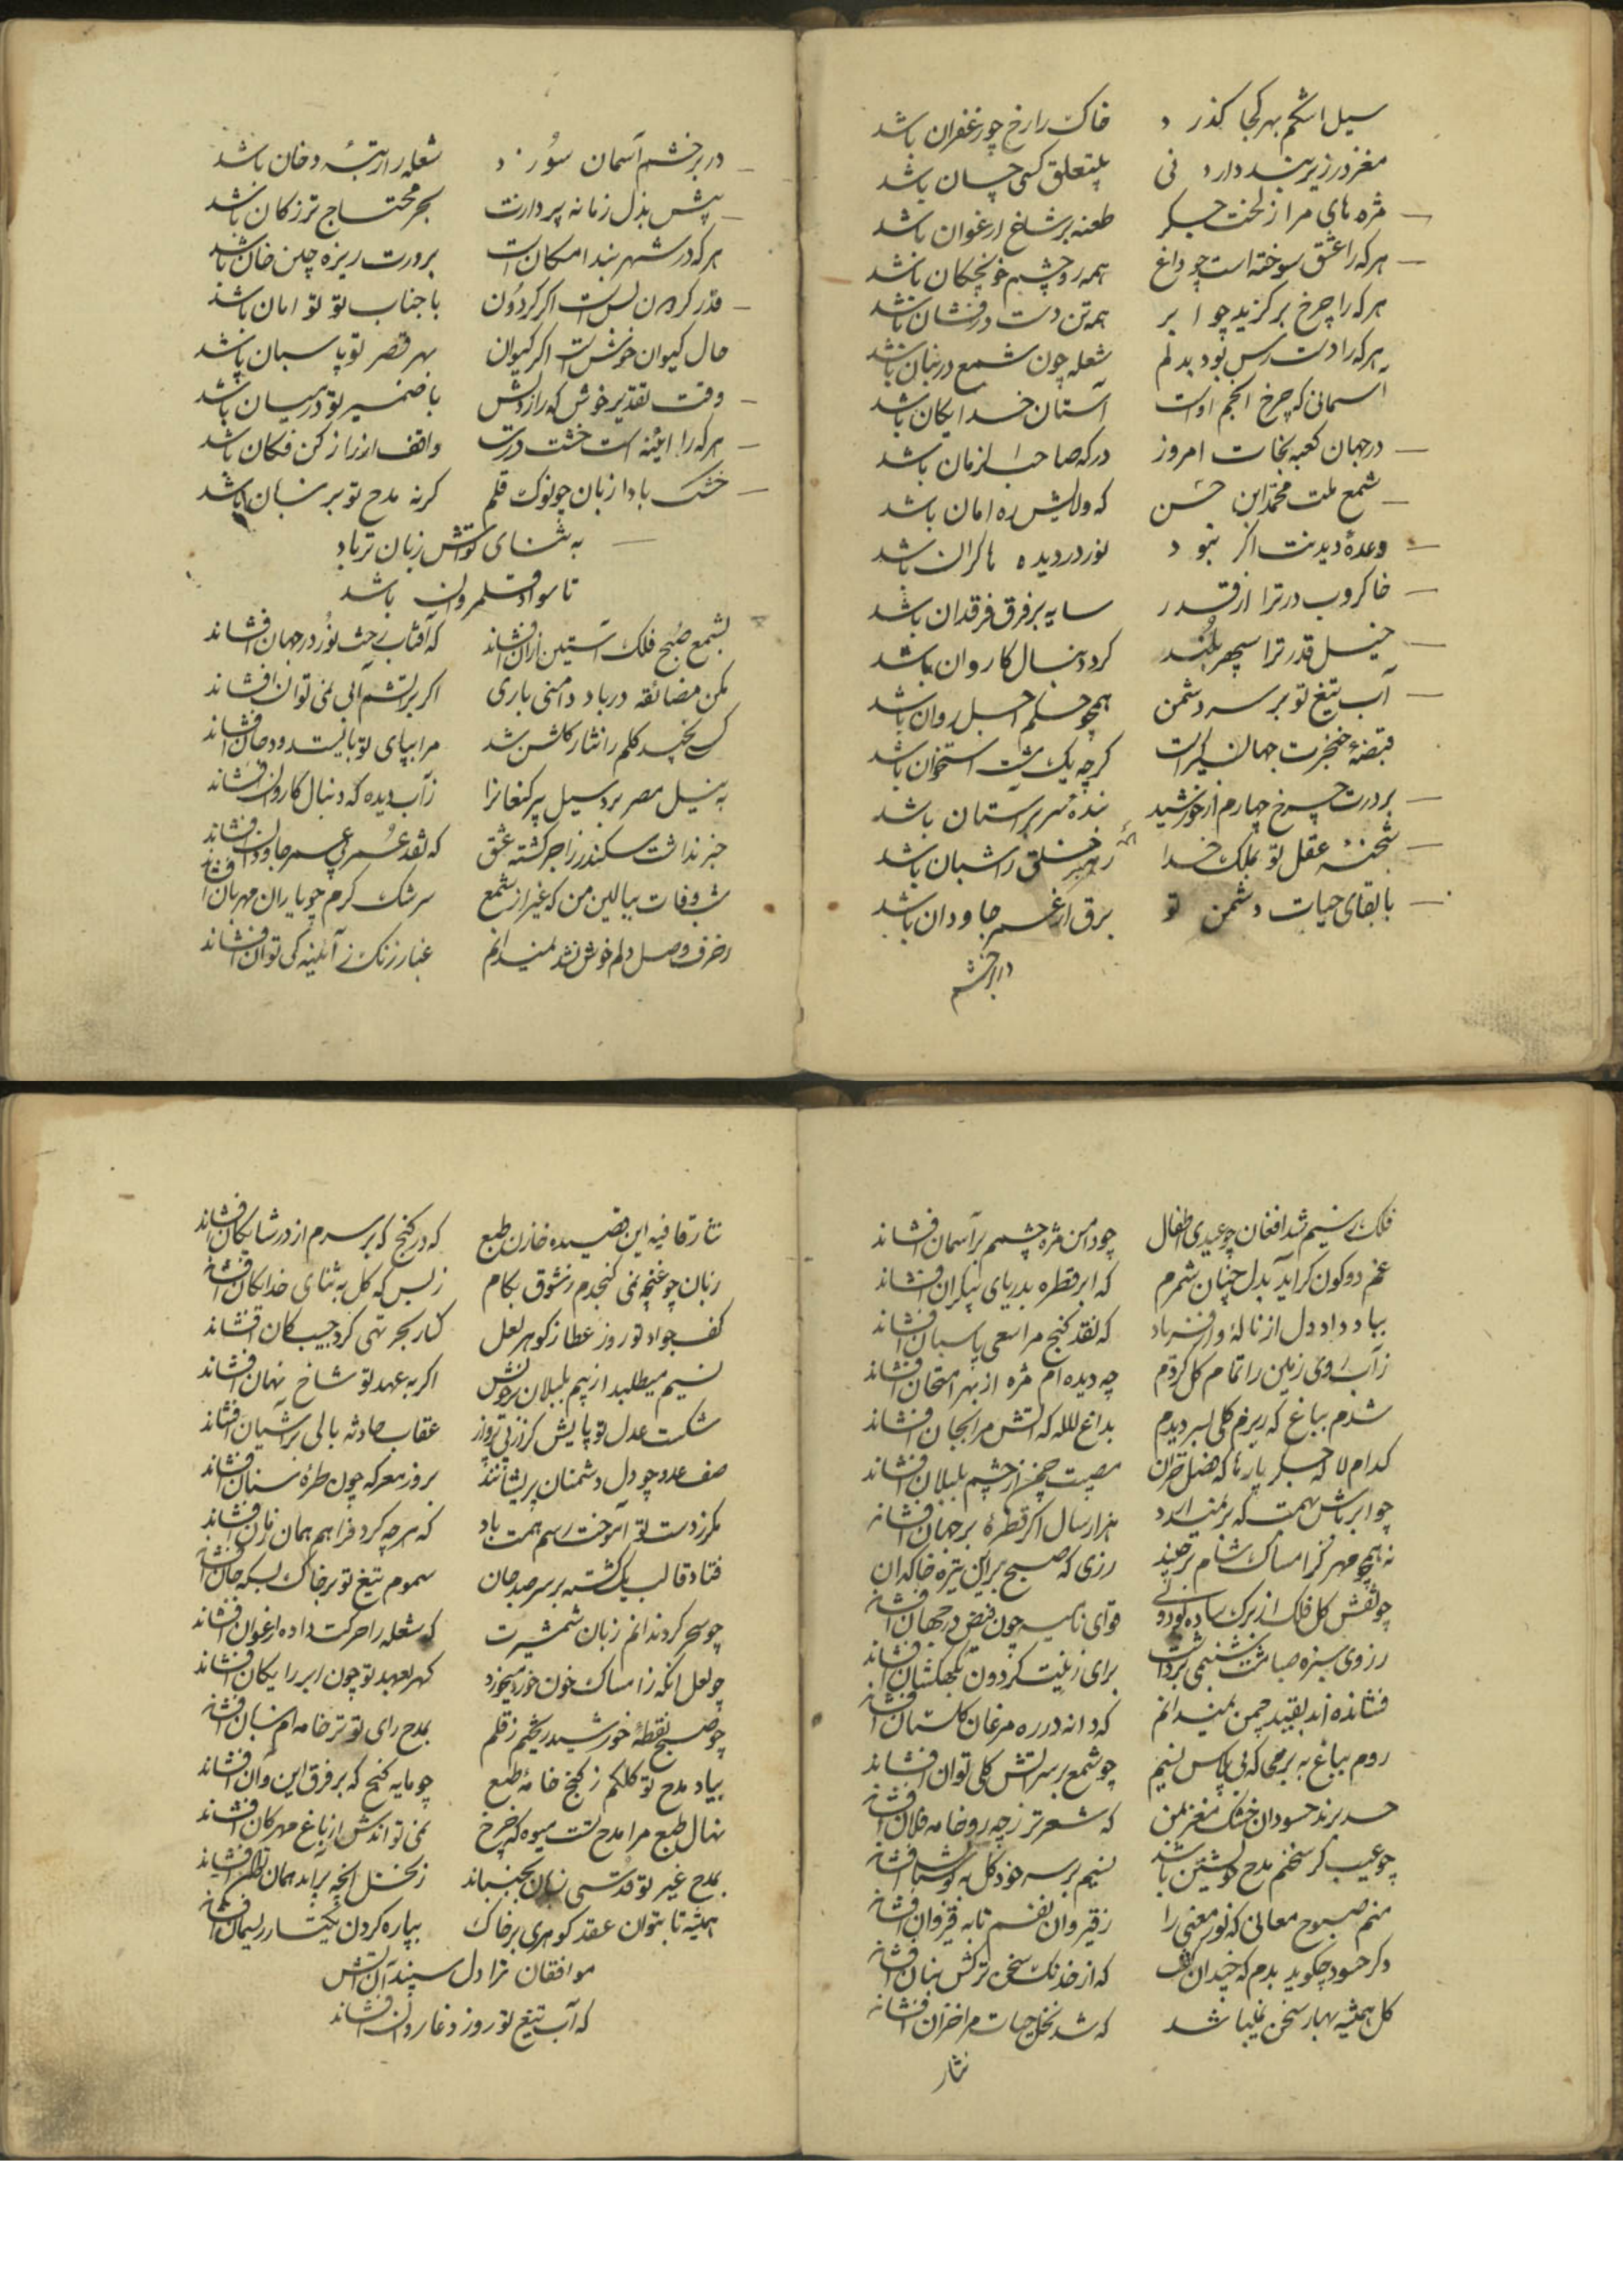 سیل اشکم بهر کجا گذرد خاک را رخ چو زعفران باشد
مغز در زیر بند دارد نی بتعلق کسی چسان باشد
مژه های مرا ز لخت جگر طعنه بر شاخ ارغوان باشد
هرکه را عشق سوخته است چو داغ همه رو چشم خونچکان باشد
هرکه را چرخ برگزید چو ابر همه تن دست درفشان باشد
هرکه را دست رس بود بدلم شعله چون شمع در زبان باشد
آسمانی که چرخ انجم اوست آستان خدایکان باشد
در جهان کعبه نجات امروز درکه صاحب الزمان باشد
شمع ملت محمد ابن حسن که ولایش ره امان باشد
وعده دیدنت اگر نبود نور در دیده ها گران باشد
خاکروب در ترا از قدر سایه بر فرق فرقدان باشد
خیل قدر ترا سپهر بلند گرد دنبال کاروان باشد
آب تیغ تو بر سر دشمن همچو حکم اجل روان باشد
قبضه خنجرت جهانگیر است گرچه یک مشت استخوان باشد
بر درت چرخ چهارم از خورشید بنده سر بر آستان باشد
شحنه عقل تو بملک خدا رهبر خلق را شبان باشد
با بقای حیات دشمن تو برق از عمر جاودان باشد
در بر خشم
در بر خشم آسمان سوزد شعله را رتبه دخان باشد
پیش بذل زمانه پردازت بحر محتاج تر ز کان باشد
هرکه در شهر بند امکان است بر درت ریزه چین خان باشد
قدر گردون بس است اگر گردون با جناب تو توامان باشد
حال کیوان خوش است اگر کیوان بهر قصر تو پاسبان باشد
وقت تقدیر خوش که راز دلش با ضمیر تو در میان باشد
هرکه را آینه است خشت درت واقف از راز کن فکان باشد
خشک بادا زبان چو نوک قلم گر نه مدح تو بر زبان باشد
به ثنای تواش زبان تر باد
تا سواد قلم روان باشد
بشمع صبح فلک آستین ازان افشاند که آفتاب رخت نور در جهان افشاند
مکن مضائقه در باد دامنی باری اگر بر آتشم آبی نمی توان افشاند
کسی نچید گلم را نثار گلشن شد مرا بپای تو بایست و جان افشاند
به نیل مصر برد سیل پیر کنعانرا ز آب دیده که دنبال کاروان افشاند
خبر نداشت سکندر ز اجر کشته عشق که نقد عمر پی عمر جاودان افشاند
شب وفات ببالین من که غیر از شمع سرشک گرم چو یاران مهربان افشاند
ز حرف وصل دلم خوش نشد نمیدانم غبار زنگ ز آئینه کی توان افشاند
فلک نسیم شد افغان چو عیدی اطفال چو دامن مژه چشمم بر آسمان افشاند
غم دو کون گر آید بدل چنان شمرم که ابر قطره بدریای بیکران افشاند
بباد داد دل از ناله و از فریاد که نقد گنج مرا سعی پاسبان افشاند
ز آب روی زمین را تمام گل کردم چه دیده ام مژه از بهر امتحان افشاند
شدم بباغ که ریزم گلی بسر دیدم بداغ لاله که آتش مرا بجان افشاند
کدام لاله جگر پاره ها که فصل خزان مصیبت چمن از چشم بلبلان افشاند
چو ابر باش بهمت که بر نمیدارد هزار سال اگر قطره بر جهان افشاند
نه همچو مهر کز امساک شام برچیند زری که صبح برین تیره خاکدان
چو نقش گل فلک از برک ساده بودی قوای نامیه چون فیض در جهان افشاند
ز روی سبزه صبا مشت شبنمی برداشت برای زینت گردون بکهکشان افشاند
فشانده اند بقید چمن نمیدانم که دانه در ره مرغان گلستان افشاند
روم بباغ به بر جا که بی پاس نسیم چو شمع بر سر آتش گلی توان افشاند
حسد برند حسودان خشک مغز بمن که شعر تر ز چه رو خامه فلان افشاند
چو عیب گر سخنم مدح خویشتن باشد نسیم بر سر خود گل به بوستان افشاند
منم صبوح معانی که نور معنی را ز قیروان نفسم تا به قیروان افشاند
دگر حسود چگوید بدم که چندان که از خدنگ سخن ترکش بنان افشاند
گل همیشه بهار سخن نمیباشد که شد نخل حیات مرا خزان افشاند
نثار
نثار قافیه این قصیده خازن طبع که در گنج که بر سرم از در شایگان افشاند
زبان چو غنچه نمی گنجدم ز شوق بکام ز بس که گل به ثنای خدایکان افشاند
کف جواد تو روز عطا ز گوهر لعل کنار بحر تهی کرد و جیب کان افشاند
نسیم میطلبد از بیم بلبلان پوزش اگر به عهد تو شاخ نهان افشاند
شکست عدل تو پایش گر از پی پرواز عقاب حادثه بالی بر آشیان افشاند
صف عدو چو دل دشمنان پریشانند بروز معرکه چون طره سنان افشاند
مگر ز دست تو آموخت رسم همت باد که هر چه کرد فراهم همان زمان افشاند
فتاد قالب یک کشته بر سر صد جان سموم تیغ تو بر خاک بسکه جان افشاند
چو سحر کرد ندانم زبان شمشیرت که شعله را حرکت داده ارغوان افشاند
چو لعل آنکه ز امساک خون خود میخورد گهر بعهد تو چون ابر رایگان افشاند
چو صبح نقطه خورشید ریختم ز قلم بمدح رای تو تر خامه ام نشان افشاند
بیاد مدح تو کلکم ز گنج خامه طبع چو مایه گنج که بر فرق این و آن افشاند
نهال طبع مرا مدح تست میوه که چرخ نمی تواندش از باغ مهرگان افشاند
بمدح غیر تو قدسی زبان نجنباند ز نخل آنچه برآید همان توان افشاند
همیشه تا بتوان عقد گوهری بر خاک بپاره کردن یکتار ریسمان افشاند
موافقان ترا دل سپند آن آتش
که آب تیغ تو روز دغا روان افشاند